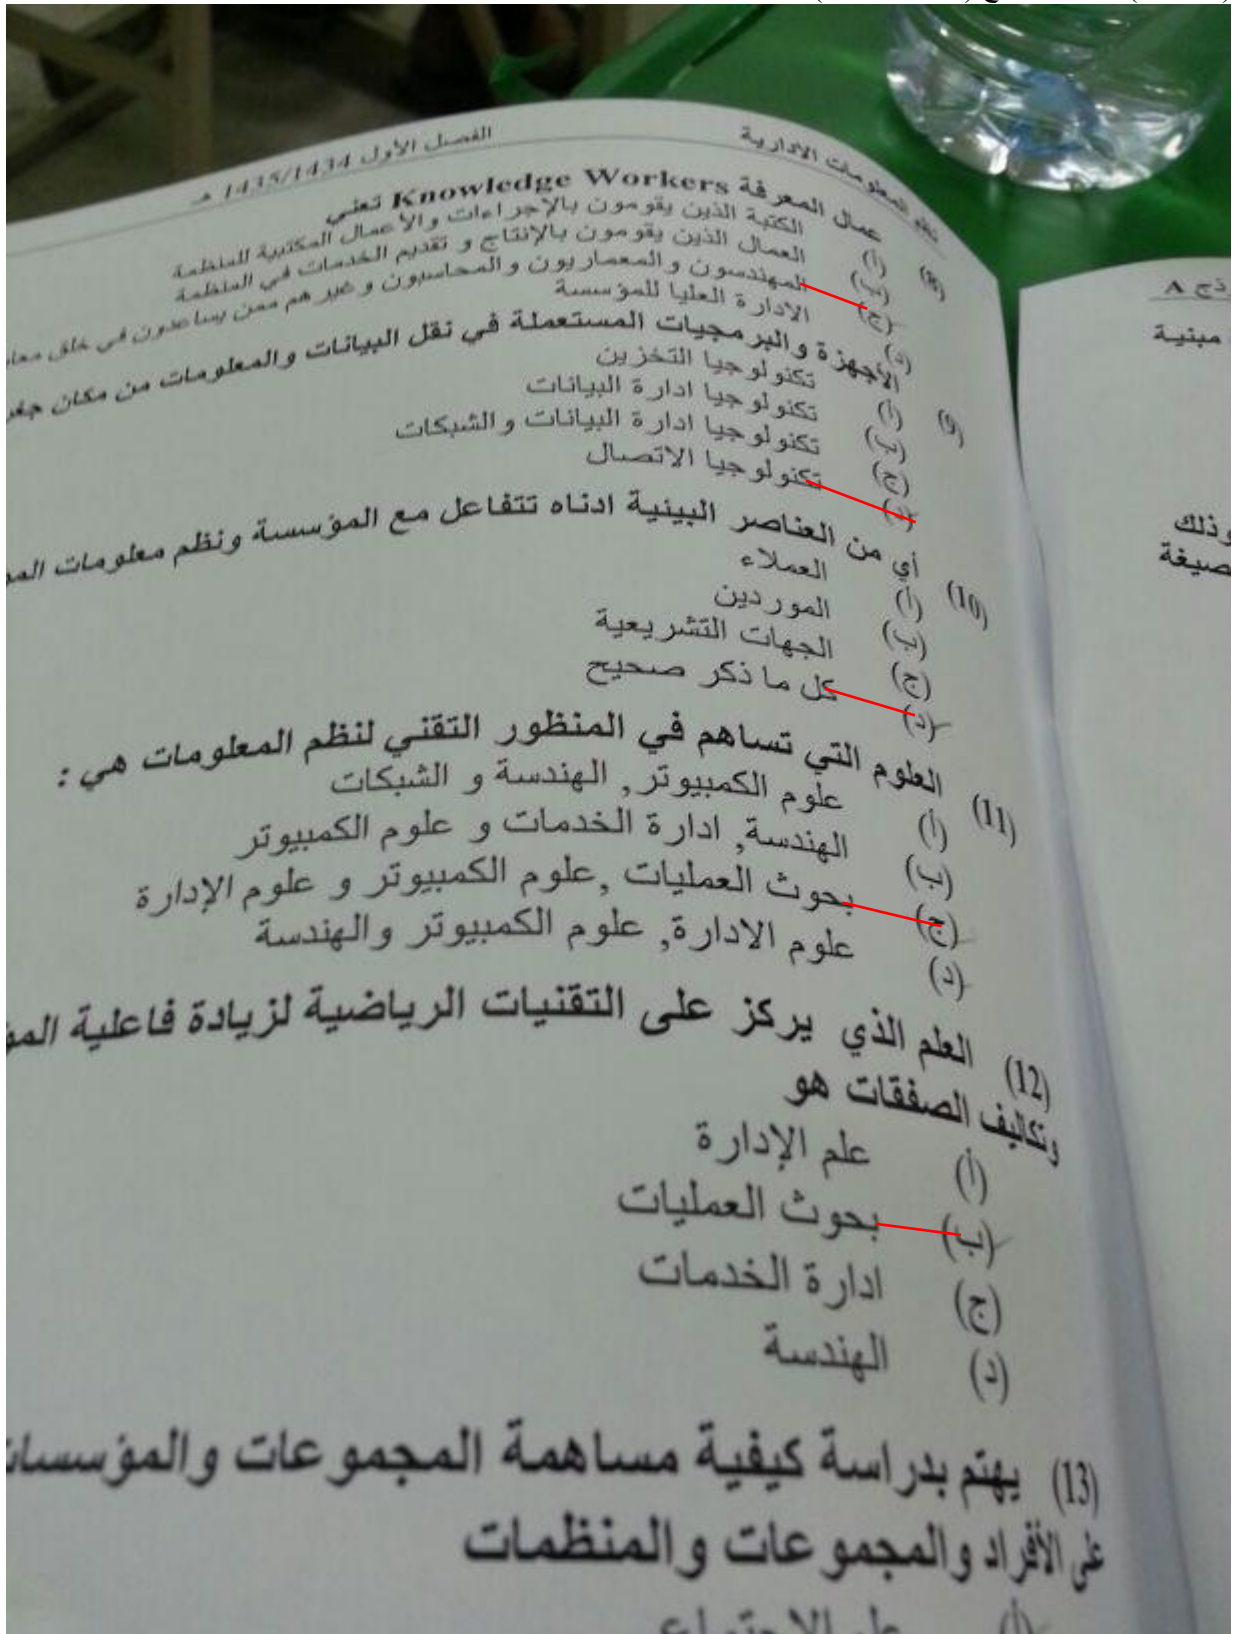 نظم المعلومات الادارية
الفصل الأول 1435/1434 هـ
(8) عمال المعرفة Knowledge Workers تعني
(أ) الكتبة الذين يقومون بالإجراءات والأعمال المكتبية للمنظمة
(ب) العمال الذين يقومون بالإنتاج و تقديم الخدمات في المنظمة
(ج) المهندسون و المعماريون و المحاسبون و غيرهم ممن يساعدون في خلق
(د) الادارة العليا للمؤسسة
(9) الأجهزة و البرمجيات المستعملة في نقل البيانات والمعلومات من مكان
(أ) تكنولوجيا التخزين
(ب) تكنولوجيا ادارة البيانات
(ج) تكنولوجيا ادارة البيانات و الشبكات
(د) تكنولوجيا الاتصال
(10) أي من العناصر البينية ادناه تتفاعل مع المؤسسة ونظم معلومات
(أ) العملاء
(ب) الموردين
(ج) الجهات التشريعية
(د) كل ما ذكر صحيح
(11) العلوم التي تساهم في المنظور التقني لنظم المعلومات هي :
(أ) علوم الكمبيوتر, الهندسة و الشبكات
(ب) الهندسة, ادارة الخدمات و علوم الكمبيوتر
(ج) بحوث العمليات ,علوم الكمبيوتر و علوم الإدارة
(د) علوم الادارة, علوم الكمبيوتر والهندسة
(12) العلم الذي يركز على التقنيات الرياضية لزيادة فاعلية
وتكاليف الصفقات هو
(أ) علم الإدارة
(ب) بحوث العمليات
(ج) ادارة الخدمات
(د) الهندسة
(13) يهتم بدراسة كيفية مساهمة المجموعات والمؤسسات
على الأفراد والمجموعات والمنظمات
(أ) علم الاجتماع
نموذج A
مبنية
وذلك
صيغة